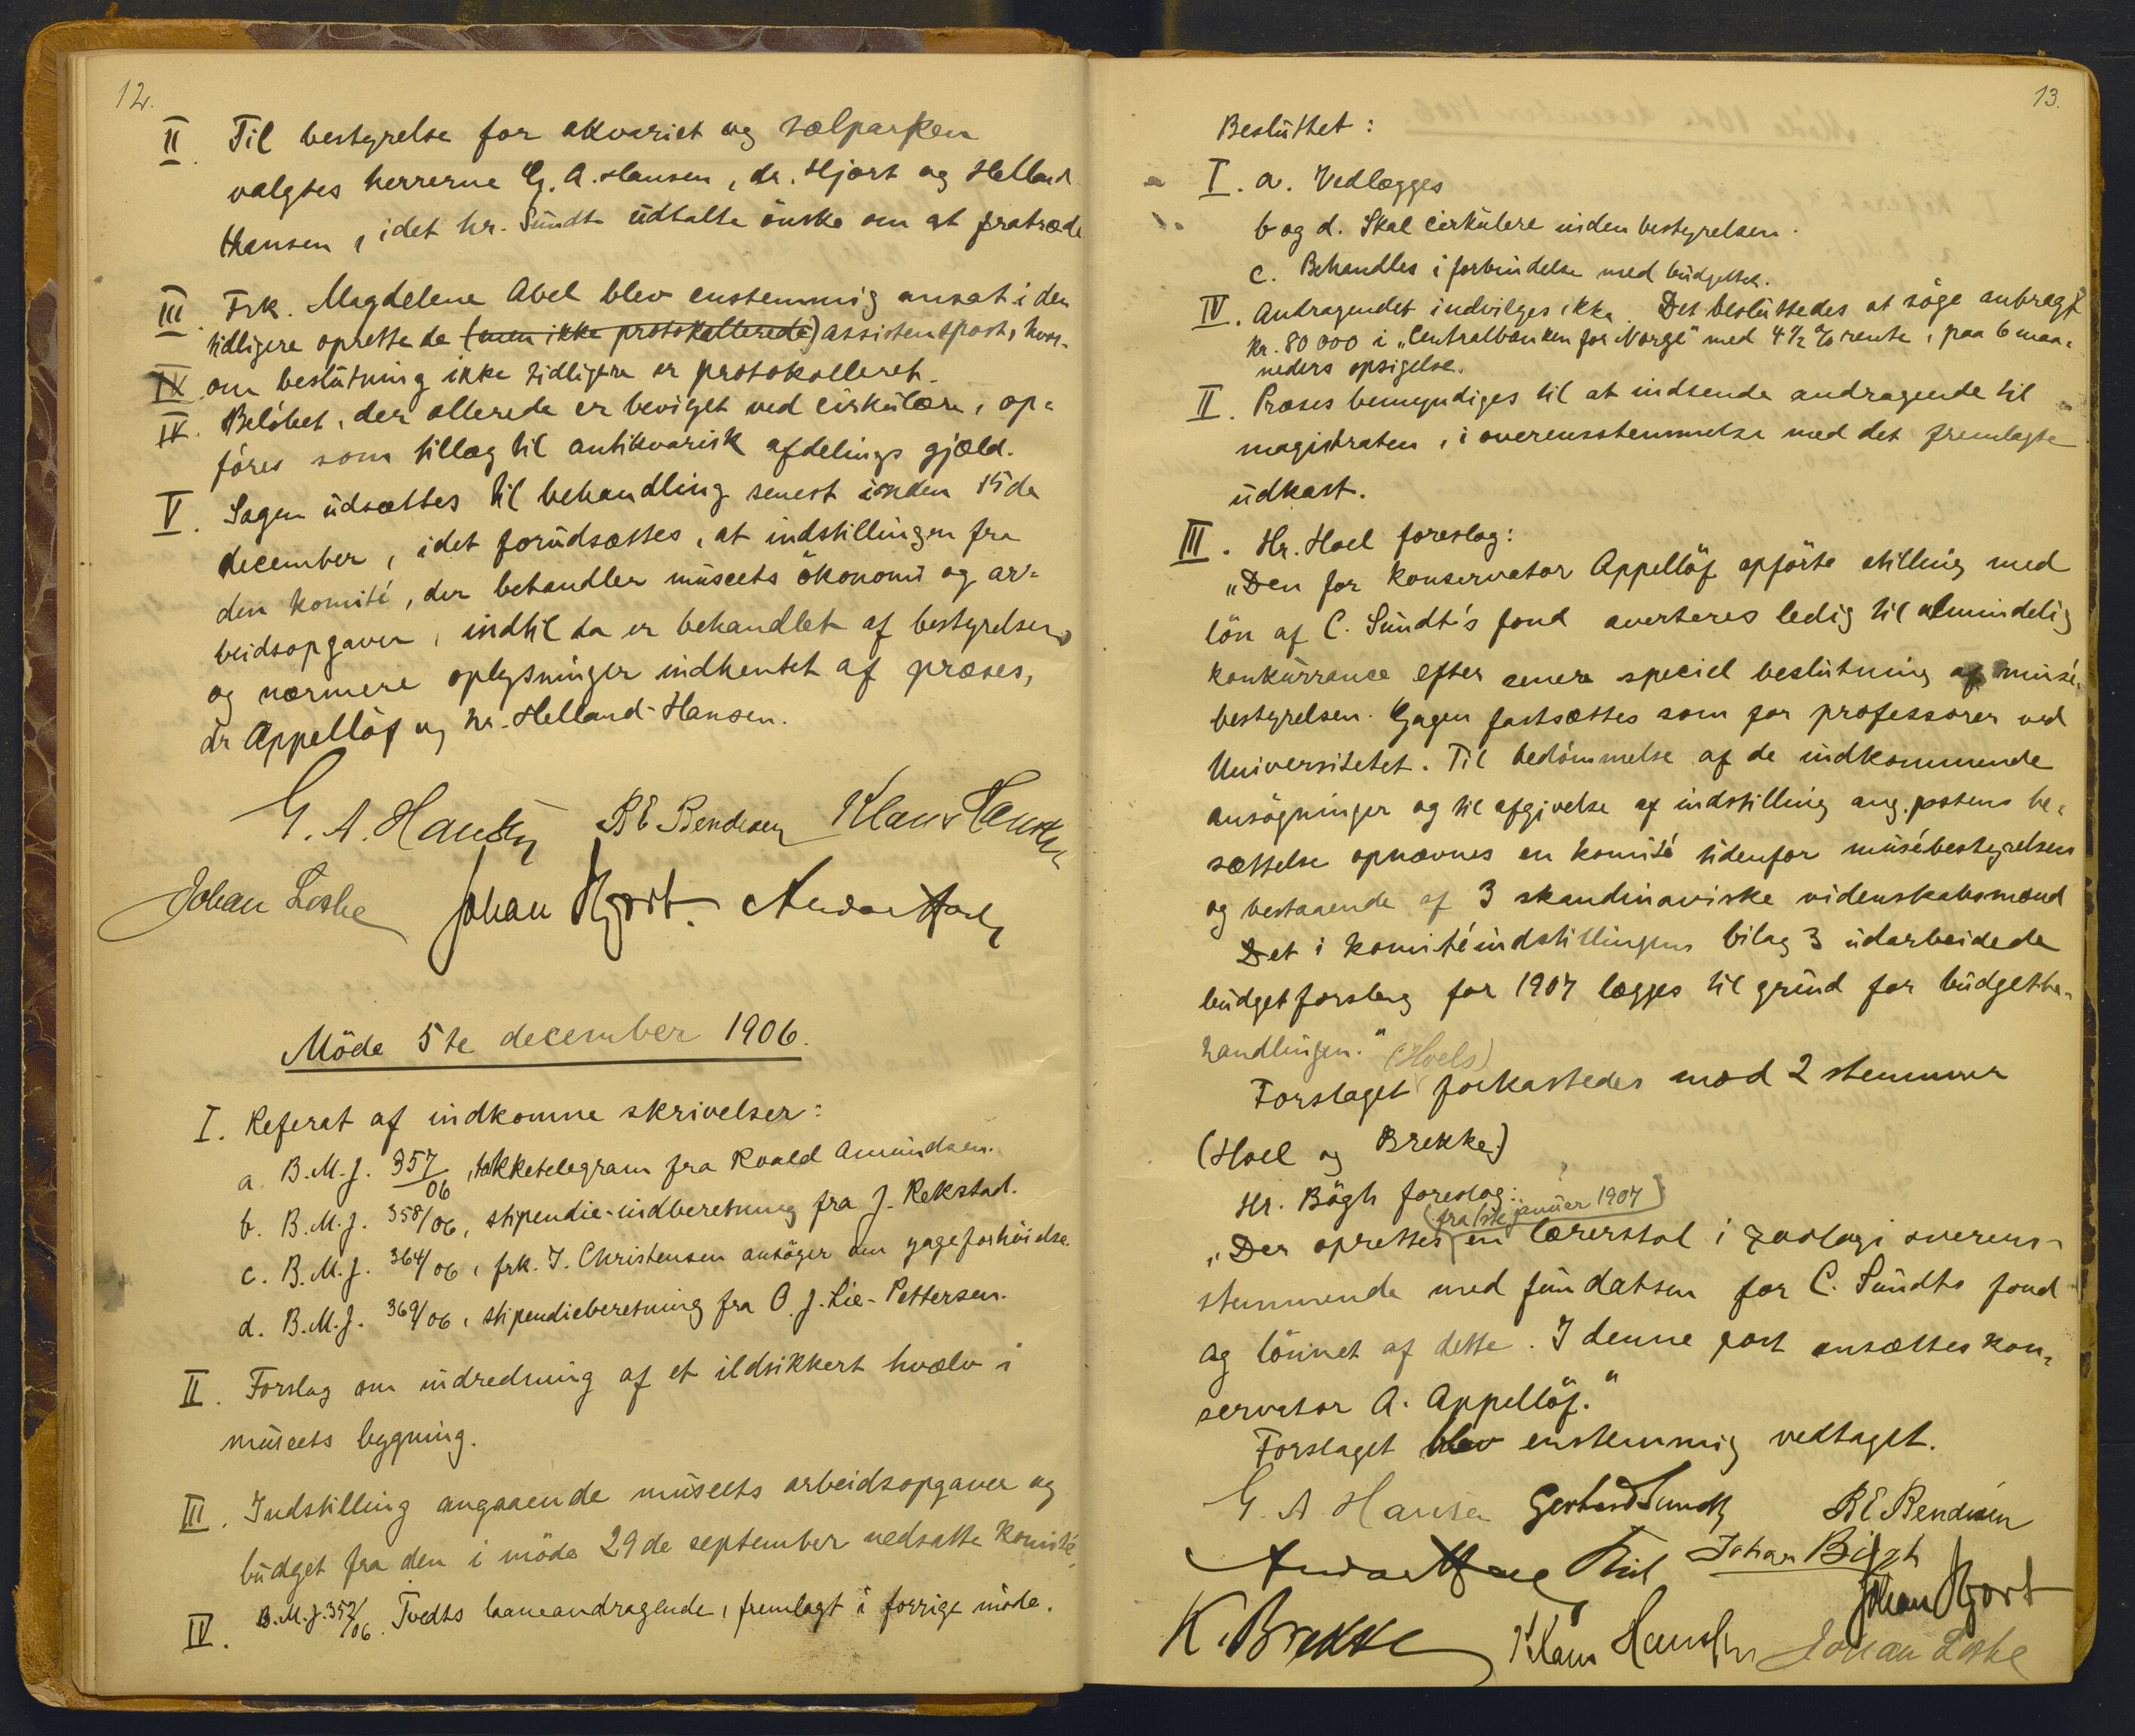 12.
II. Til bestyrelse for akvariet og sælparken
valgtes herrerne G. A. Hansen, dr. Hjort og Helland
Hansen, idet hr. Sundt udtalte önske om at fratræde
III. Frk. Magdelene Abel blev enstemmig ansat i den
tidligere oprettede (men ikke protokollerede) assistentpost, hvor-
IV om beslutning ikke tidligere er protokolleret.
IV. Belöbet, der allerede er beviget ved cirkulære, op-
föres som tillæg til antikvarisk afdelings gjæld.
V. Sagen udsættes til behandling senest inden 15de
december, idet forudsættes, at indstillingen fra
den komité, der behandler museets ökonomi og ar-
beidsopgaver, indtil da er behandlet af bestyrelsen,
og nærmere oplysninger indhentet af præses,
dr Appellöf og hr. Helland-Hansen.
G. A. Hansen B E Bendixen Klaus Hanssen
Johan Lothe Johan Hjort.
Möde 5te december 1906.
I. Referat af indkomne skrivelser:
a. B.M.J. 357/06, takketelegram fra Roald Amundsen.
b. B.M.J. 358/06, stipendie-indberetning fra J. Rekstad.
c. B.M.J. 364/06, frk. T. Christensen ansöger om gageforhöidse.
d. B.M.J. 369/06, stipendieberetning fra O. J. Lie-Pettersen.
II. Forslag om indredning af et ildsikkert hvælv i
museets bygning.
III. Indstilling angaaende museets arbeidsopgaver og
budget fra den i möde 29de september nedsatte komité.
IV. B.M.J. 352/06. Tvedts laaneandragende, fremlagt i forrige möde.
13.
Besluttet:
I. a. Vedlægges
b og d. Skal cirkulere inden bestyrelsen.
c. Behandles i forbindelse med budgettet.
IV. Andragendet indvilges ikke. Det besluttedes at söge anbragt
kr. 80 000 i „Centralbanken for Norge" med 4½ % rente, paa 6 maa-
neders opsigelse.
II. Præses bemyndiges til at indsende andragende til
magistraten, i overensstemmelse med det fremlagte
udkast.
III. Hr. Hoel foreslog:
„Den for konservator Appellöf opförte stilling med
lön af C. Sundt's fond averteres ledig til almindelig
konkurrance efter senere speciel beslutning af musé-
bestyrelsen. Gagen fastsættes som for professorer ved
Universitetet. Til bedömmelse af de indkommende
ansögninger og til afgivelse af indstilling ang. postens be-
sættelse opnævnes en komité udenfor musébestyrelsen
og bestaaende af 3 skandinaviske videnskabsmænd
Det i komitéindstillingens bilag 3 udarbeidede
budgetforslag for 1907 lægges til grund for budgetbe-
handlingen."
(Hoels)
Forslaget forkastedes mod 2 stemmer
(Hoel og Brekke)
Hr. Bögh foreslog:
(fra 1ste januar 1907)
„Der oprettes en lærerstol i zoologi overens-
stemmende med fundatsen for C. Sundts fond
og lönnet af dette. I denne post ansættes kon-
servator A. Appellöf."
Forslaget blev enstemmig vedtaget.
G. A Hansen Gerhard Sundt B E Bendixen
Johan Bögh
Johan Hjort
K. Brekke Klaus Hanssen Johan Lothe